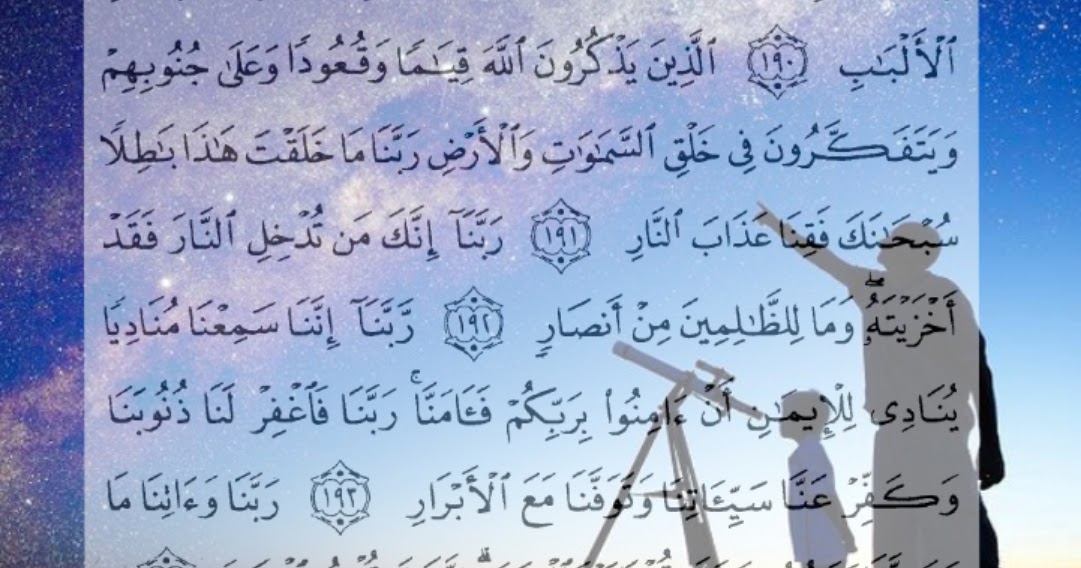 ٱلۡأَلۡبَٰبِ ١٩٠ ٱلَّذِينَ يَذۡكُرُونَ ٱللَّهَ قِيَٰمٗا وَقُعُودٗا وَعَلَىٰ جُنُوبِهِمۡ
وَيَتَفَكَّرُونَ فِي خَلۡقِ ٱلسَّمَٰوَٰتِ وَٱلۡأَرۡضِ رَبَّنَا مَا خَلَقۡتَ هَٰذَا بَٰطِلٗا
سُبۡحَٰنَكَ فَقِنَا عَذَابَ ٱلنَّارِ ١٩١ رَبَّنَآ إِنَّكَ مَن تُدۡخِلِ ٱلنَّارَ فَقَدۡ
أَخۡزَيۡتَهُۥۖ وَمَا لِلظَّٰلِمِينَ مِنۡ أَنصَارٖ ١٩٢ رَّبَّنَآ إِنَّنَا سَمِعۡنَا مُنَادِيٗا
يُنَادِي لِلۡإِيمَٰنِ أَنۡ ءَامِنُواْ بِرَبِّكُمۡ فَـَٔامَنَّاۚ رَبَّنَا فَٱغۡفِرۡ لَنَا ذُنُوبَنَا
وَكَفِّرۡ عَنَّا سَيِّـَٔاتِنَا وَتَوَفَّنَا مَعَ ٱلۡأَبۡرَارِ ١٩٣ رَبَّنَا وَءَاتِنَا مَا